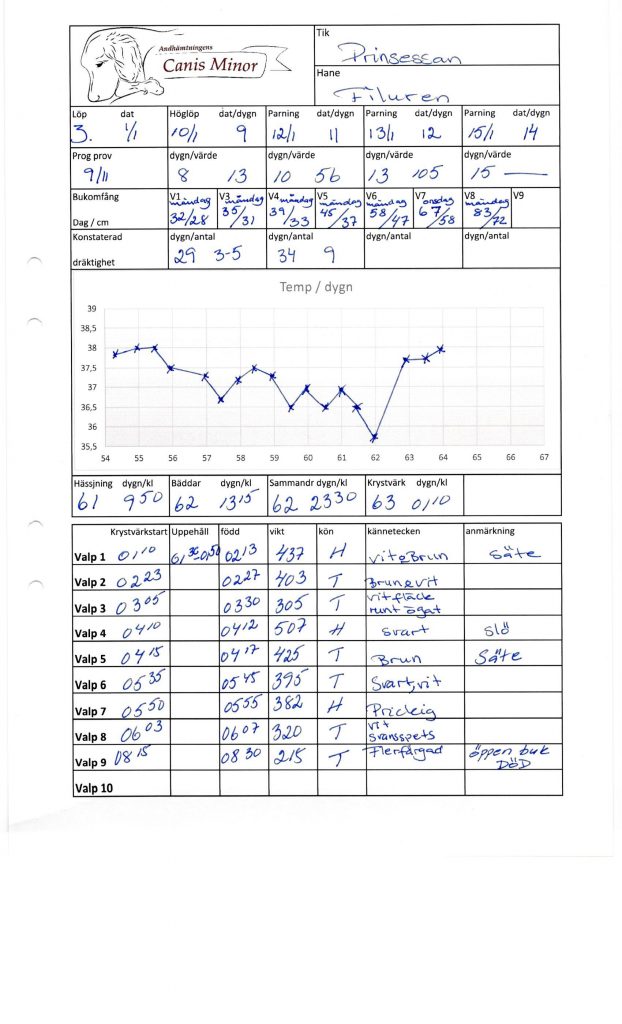 Andhämtningens
Canis Minor
Tik
Prinsessan
Hane
Filuren
Löp dat Höglöp dat/dygn Parning dat/dygn Parning dat/dygn Parning dat/dygn
3. 1/1 10/1 9 12/1 11 13/1 12 15/1 14
Prog prov dygn/värde dygn/värde dygn/värde dygn/värde
9/11 8 13 10 56 13 105 15 —
Bukomfång V1 måndag V3 måndag V4 måndag V5 måndag V6 måndag V7 onsdag V8 måndag V9
Dag / cm 32/28 35/31 39/33 45/37 58/47 67/58 83/72
Konstaterad dygn/antal dygn/antal dygn/antal dygn/antal
dräktighet 29 3-5 34 9
Temp / dygn
39
38,5
38
37,5
37
36,5
36
35,5
54 55 56 57 58 59 60 61 62 63 64 65 66 67
Hässjning dygn/kl Bäddar dygn/kl Sammandr dygn/kl Krystvärk dygn/kl
61 950 62 1315 62 2330 63 0110
Krystvärkstart Uppehåll född vikt kön kännetecken anmärkning
Valp 1 0110 0213 437 H vit&Brun Säte
Valp 2 0223 0227 403 T Brun&vit
Valp 3 0305 0330 305 T vit fläck runt ögat
Valp 4 0410 0412 507 H svart slö
Valp 5 0415 0417 425 T Brun Säte
Valp 6 0535 0545 395 T Svart,vit
Valp 7 0550 0555 382 H Prickig
Valp 8 0603 0607 320 T vit svansspets
Valp 9 0815 0830 215 T Flerfärgad öppen buk DÖD
Valp 10